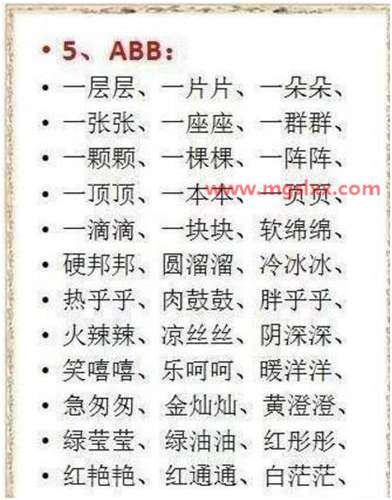 5、ABB：
一层层、一片片、一朵朵、
一张张、一座座、一群群、
一颗颗、一棵棵、一阵阵、
一顶顶、一本本、一页页、
www.mgslxx.com
一滴滴、一块块、软绵绵、
硬邦邦、圆溜溜、冷冰冰、
热乎乎、肉鼓鼓、胖乎乎、
火辣辣、凉丝丝、阴深深、
笑嘻嘻、乐呵呵、暖洋洋、
急匆匆、金灿灿、黄澄澄、
绿莹莹、绿油油、红彤彤、
红艳艳、红通通、白茫茫、